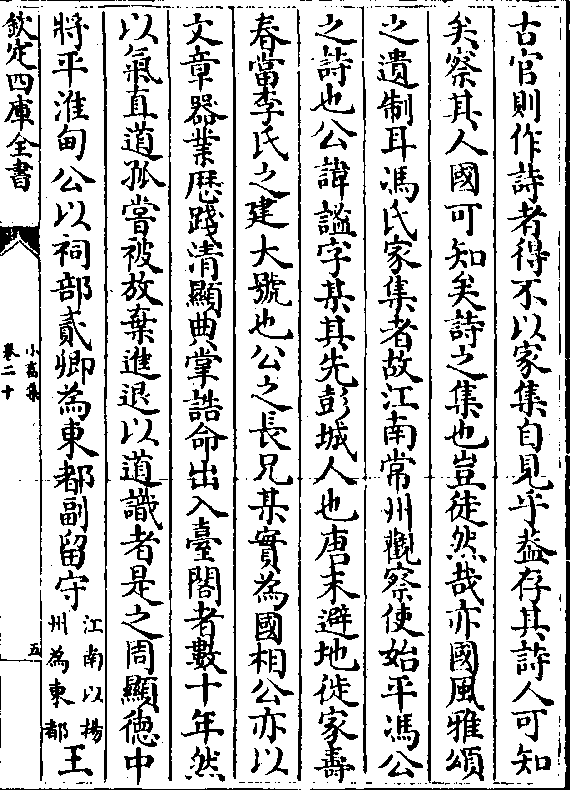 古官則作詩者得不以家集自見乎葢存其詩人可知
矣察其人國可知矣詩之集也豈徒然哉亦國風雅頌
之遺制耳馮氏家集者故江南常州觀察使始平馮公
之詩也公諱謐字某其先彭城人也唐末避地徙家壽
春當李氏之建大號也公之長兄某實為國相公亦以
文章器業歴踐清顯典掌誥命出入臺閣者數十年然
以氣直道孤嘗被放棄進退以道識者是之周顯徳中
將平淮甸公以祠部貳卿為東都副留守江南以揚州為東都王
欽定四庫全書
小畜集
卷二十
五